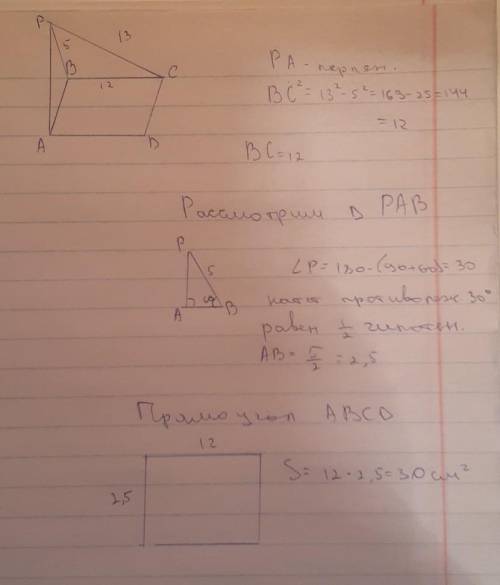 P
5
13
B
12
C
A
D
PA - перпен.
BC² = 13² - 5² = 163 - 25 = 144
= 12
BC = 12
Рассмотрим Δ PAB
P
5
A
B
∠P = 180 - (90+60) = 30
катет противолеж 30°
равен 1/2 гипотен.
AB = 5/2 = 2,5
Прямоугол ABCD
12
2,5
S = 12 · 2,5 = 30 см²